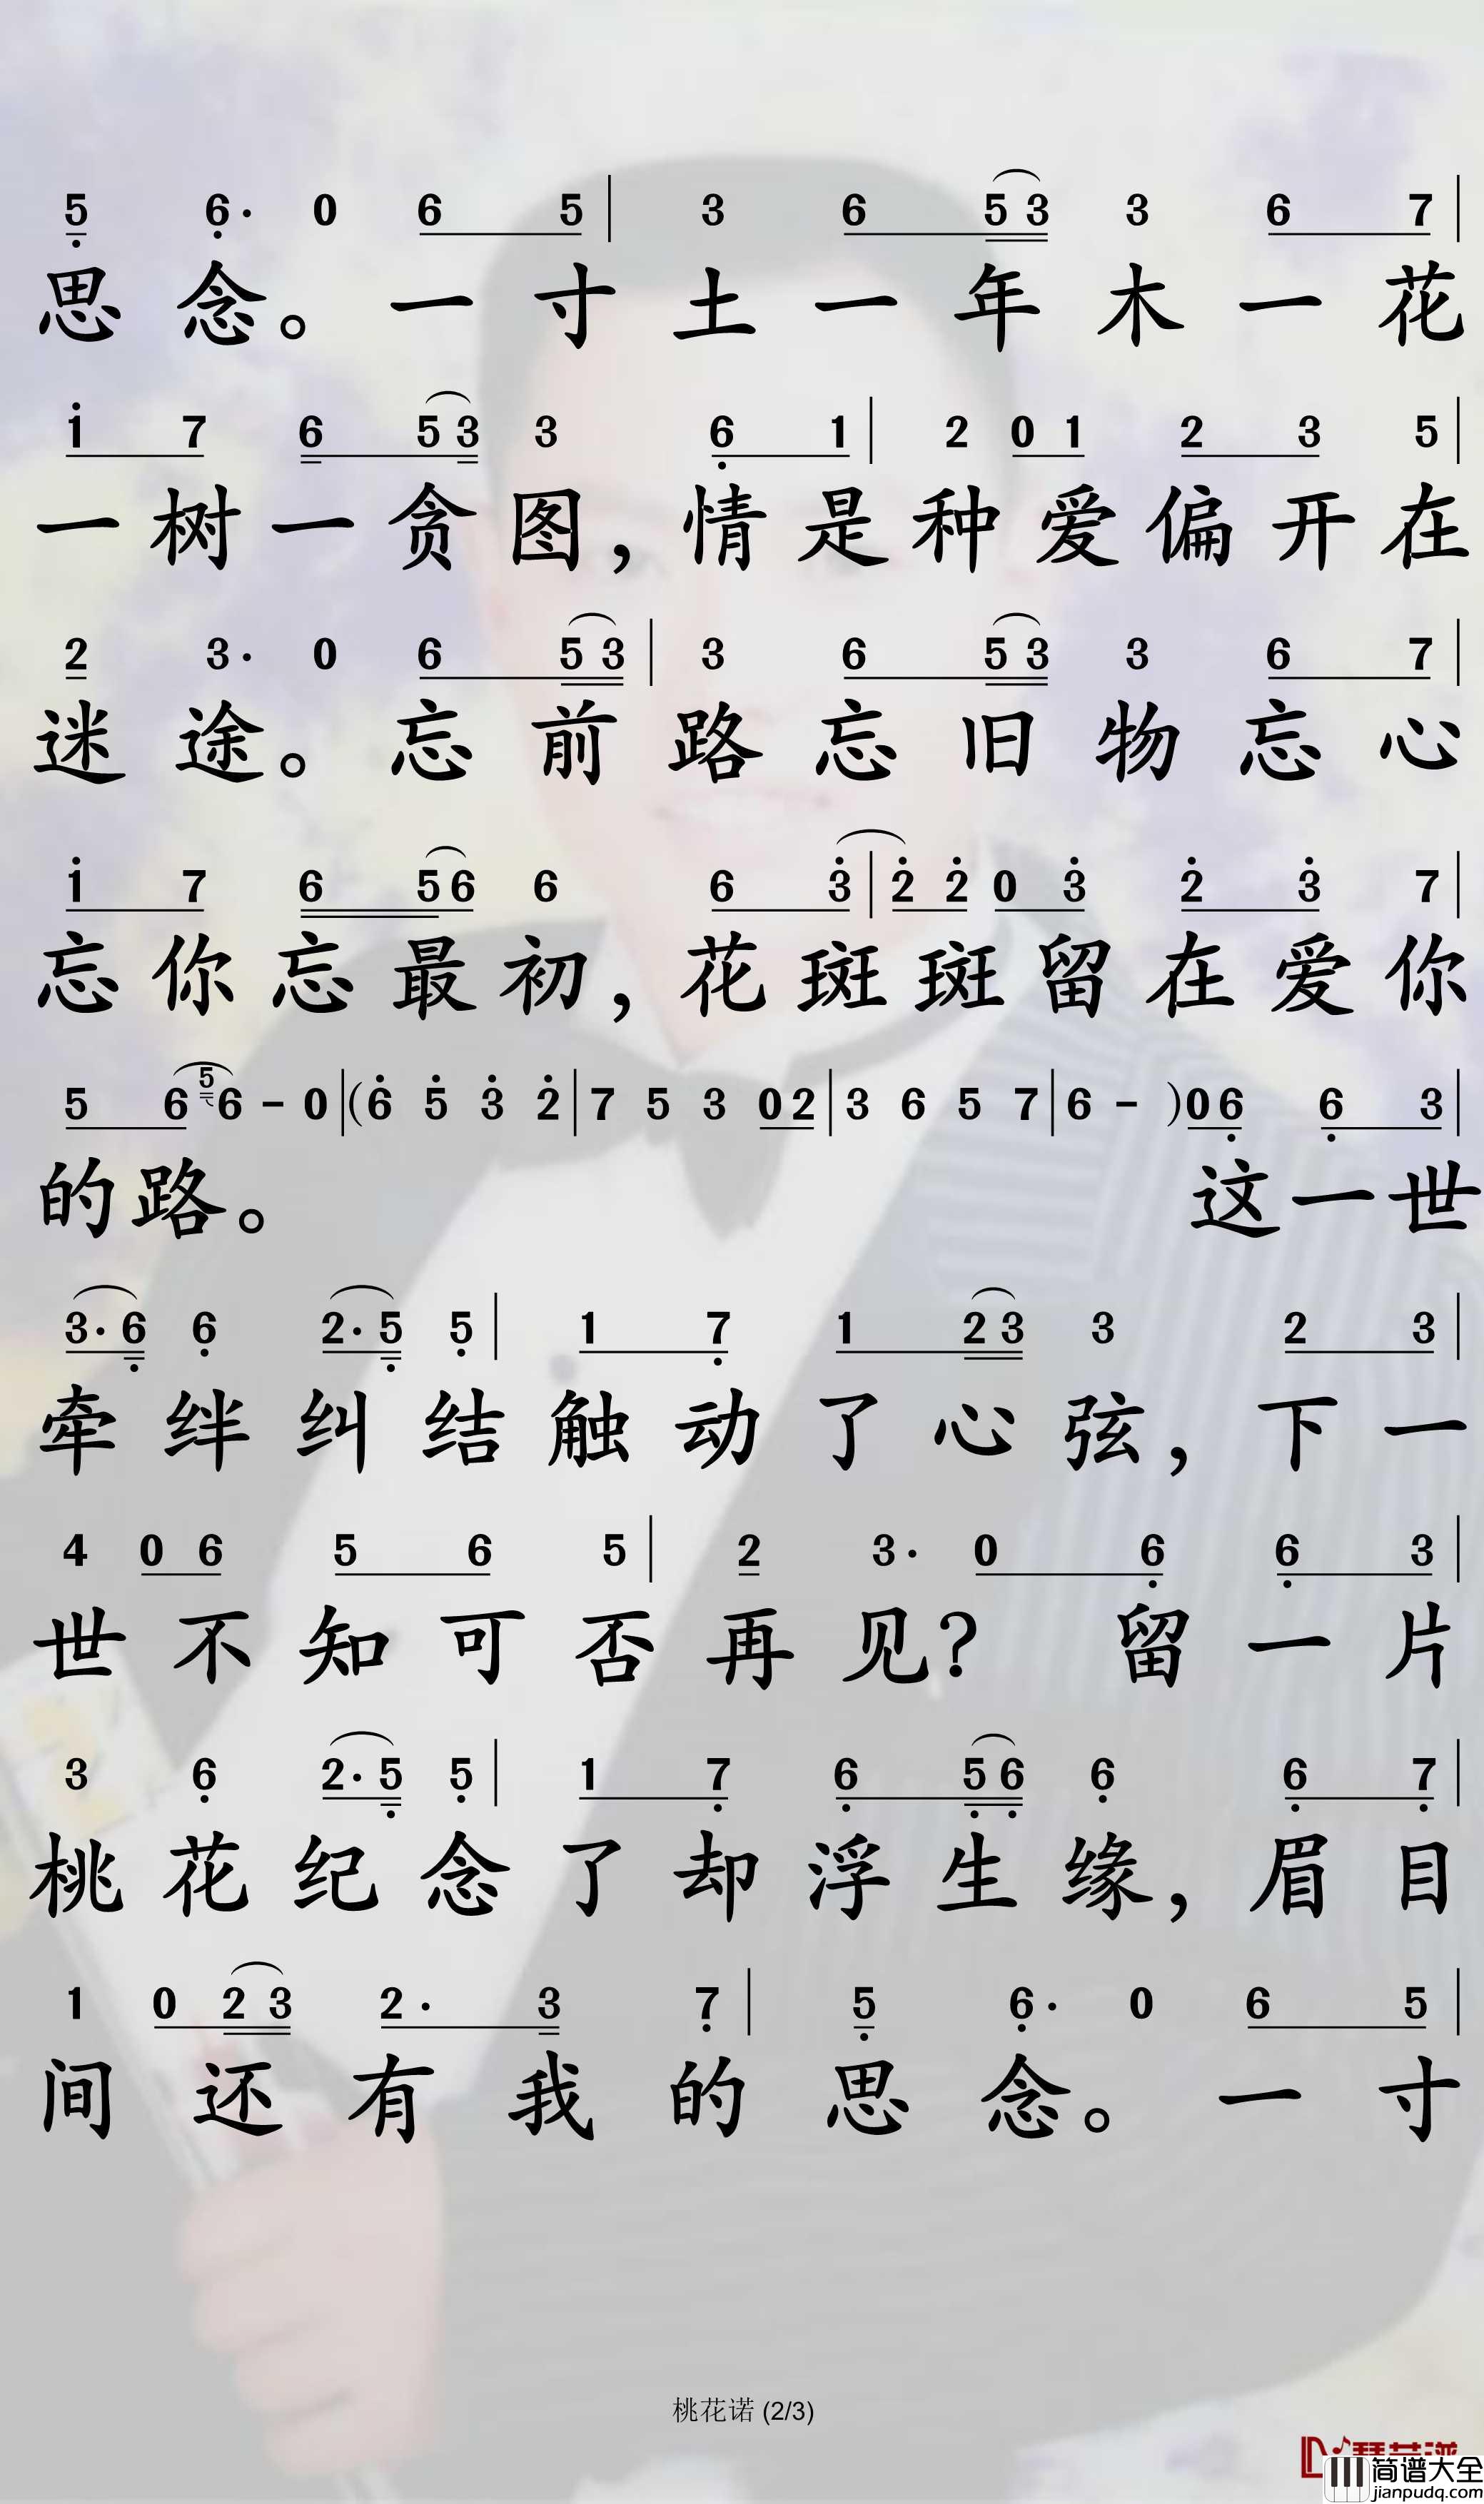 5 6· 0 6 5 | 3 6 5 3 3 6 7 |
思 念。 一 寸 土 一 年 木 一 花
1 7 6 5 3 3 6 1 | 2 0 1 2 3 5 |
一 树 一 贪 图， 情 是 种 爱 偏 开 在
2 3· 0 6 5 3 | 3 6 5 3 3 6 7 |
迷 途。 忘 前 路 忘 旧 物 忘 心
1 7 6 5 6 6 6 3 | 2 2 0 3 2 3 7 |
忘 你 忘 最 初， 花 斑 斑 留 在 爱 你
5 6 5 6 - 0 | ( 6 5 3 2 | 7 5 3 0 2 | 3 6 5 7 | 6 - ) 0 6 6 3 |
的 路。 这 一 世
3· 6 6 2· 5 5 | 1 7 1 2 3 3 2 3 |
牵 绊 纠 结 触 动 了 心 弦， 下 一
4 0 6 5 6 5 | 2 3· 0 6 6 3 |
世 不 知 可 否 再 见？ 留 一 片
3 6 2· 5 5 | 1 7 6 5 6 6 6 7 |
桃 花 纪 念 了 却 浮 生 缘， 眉 目
1 0 2 3 2· 3 7 | 5 6· 0 6 5 |
间 还 有 我 的 思 念。 一 寸
桃花诺 (2/3)
简谱大全
jianpudq.com